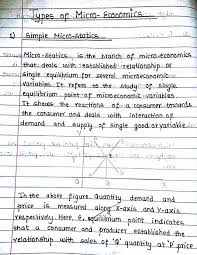 Types of Micro-Economics
1) Simple Micro-Statics
Micro-statics is the branch of micro-economics
that deals with established relationship or
single equilibrium for several microeconomic
variables. It refers to the study of single
equilibrium point of microeconomic variables.
It shows the reactions of a consumer towards
the consumer and deals with interaction of
demand and supply of single good or variable.
Quantity
In the above figure Quantity demand and
price is measured along X-axis and Y-axis
respectively. Here, E, equilibrium point indicates
that a consumer and producer established the
relationship with sales of 'Q' quantity at 'P' price